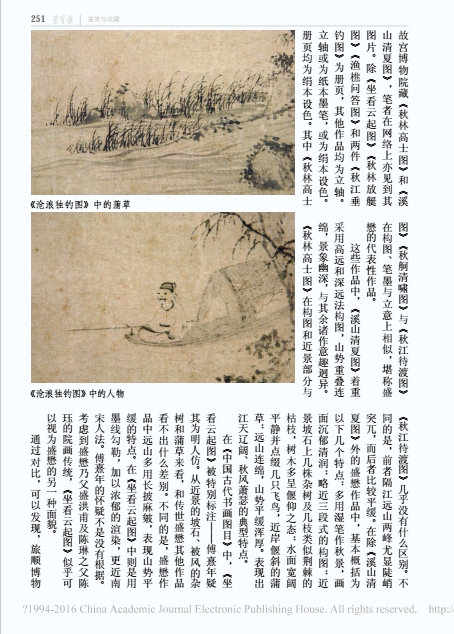 251 荣宝斋 鉴赏与收藏
故宫博物院藏《秋林高士图》和《溪
山清夏图》，笔者在网络上亦见到其
图片。除《坐看云起图》《秋林放艇
图》《渔樵问答图》和两件《秋江垂
钓图》为册页，其他作品均为立轴。
立轴或为纸本墨笔，或为绢本设色。
册页均为绢本设色。其中《秋林高士
《沧浪独钓图》中的蒲草
图》《秋舸清啸图》与《秋江待渡图》
在构图、笔墨与立意上相似，堪称盛
懋的代表性作品。
这些作品中，《溪山清夏图》着重
采用高远和深远法构图，山势重叠连
绵，景象幽深，与其余诸作意趣迥异。
《秋林高士图》在构图和近景部分与
《沧浪独钓图》中的人物
《秋江待渡图》几乎没有什么区别。不
同的是，前者隔江远山两峰尤显陡峭
突兀，而后者比较平缓。在除《溪山清
夏图》外的盛懋作品中，基本概括为
以下几个特点：多用湿笔作秋景，画
面沉郁清润；略近三段式的构图：近
景坡石上几株杂树及几枝类似荆棘的
枯枝，树木多呈偃仰之态；水面宽阔
平静并点缀几只飞鸟，近岸偃斜的蒲
草；远山连绵，山势平缓浑厚。表现出
江天辽阔、秋风萧瑟的典型特点。
在《中国古代书画图目》中，《坐
看云起图》被特别标注——傅熹年疑
其为明人仿。从近景的坡石、被风的杂
树和蒲草来看，和传世盛懋其他作品
看不出什么差别。不同的是，盛懋作
品中远山多用长披麻皴，表现山势平
缓的特点。在《坐看云起图》中则是用
墨线勾勒，加以浓郁的渲染，更近南
宋人法。傅熹年的怀疑不是没有根据。
考虑到盛懋乃父盛洪甫及陈琳之父陈
珏的院画传统，《坐看云起图》似乎可
以视为盛懋的另一种面貌。
通过对比，可以发现，旅顺博物
?1994-2016 China Academic Journal Electronic Publishing House. All rights reserved. http:/